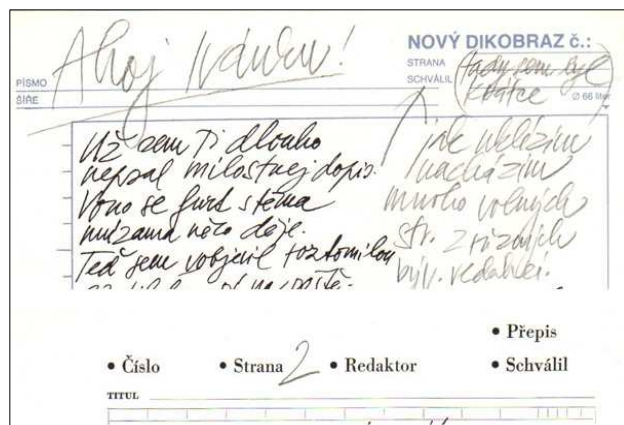 Ahoj Ivánku!
NOVÝ DIKOBRAZ č.:
STRANA
SCHVÁLIL
PÍSMO
ŠÍŘE
tady sem byl
krátce
Ø 66 liter
Už sem Ti dlouho
nepsal milostnej dopis.
Vono se furt s těma
múzama něco děje.
Teď sem vobjevil roztomilou
jak uklízím
nacházím
mnoho volných
str. z různých
býv. redakcí.
• Přepis
• Číslo • Strana 2 • Redaktor • Schválil
TITUL